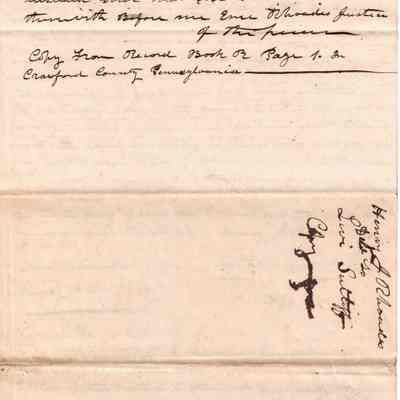 therewith Before me Enos Rhoades Justice
of the peace
Copy From Record Book R Page 1. In
Crawford County Pennsylvania
Henry J Rhoades
to
Levi Sutliff
Copy